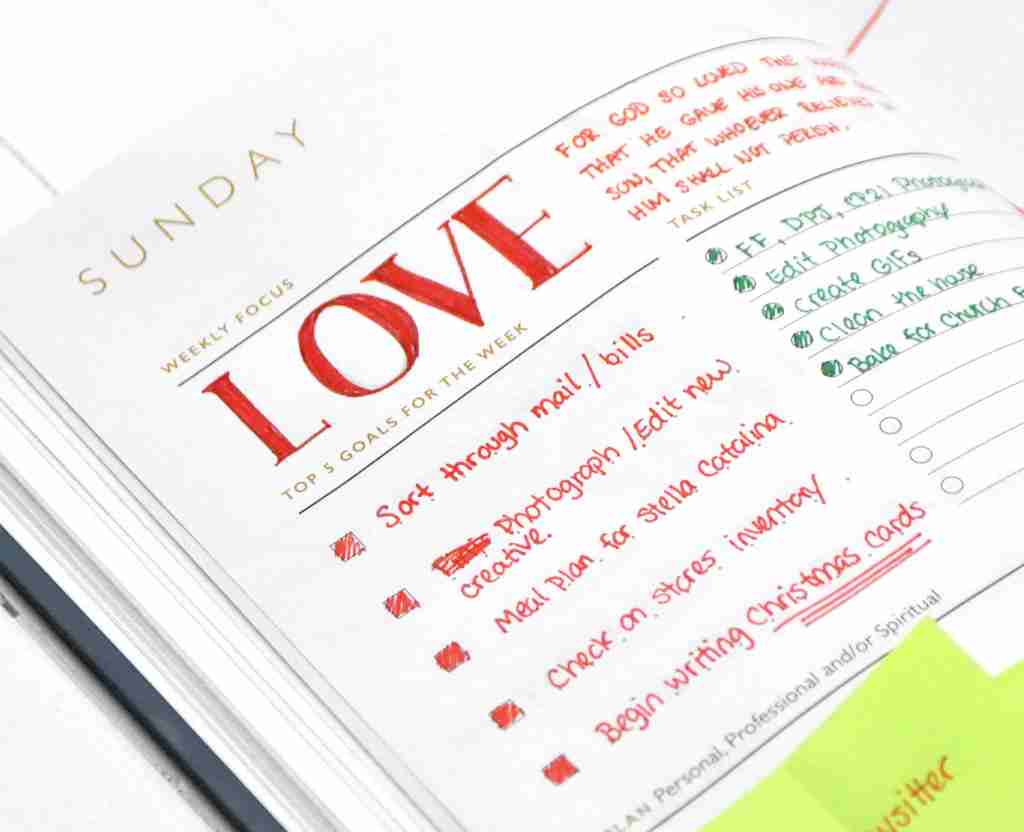 SUNDAY
WEEKLY FOCUS
LOVE
FOR GOD SO LOVED THE
THAT HE GAVE HIS ONE AND
SON, THAT WHOEVER BELIEVES
HIM SHALL NOT PERISH.
TOP 5 GOALS FOR THE WEEK
Sort through mail / bills
Photograph / Edit new
creative.
Meal Plan for Stella Catalina.
Check on stores inventory
Begin writing Christmas cards
TASK LIST
FF, DPJ, (P2)
Edit Photography
Create GIFs
Clean the house
Bake for Church
Personal, Professional and/or Spiritual